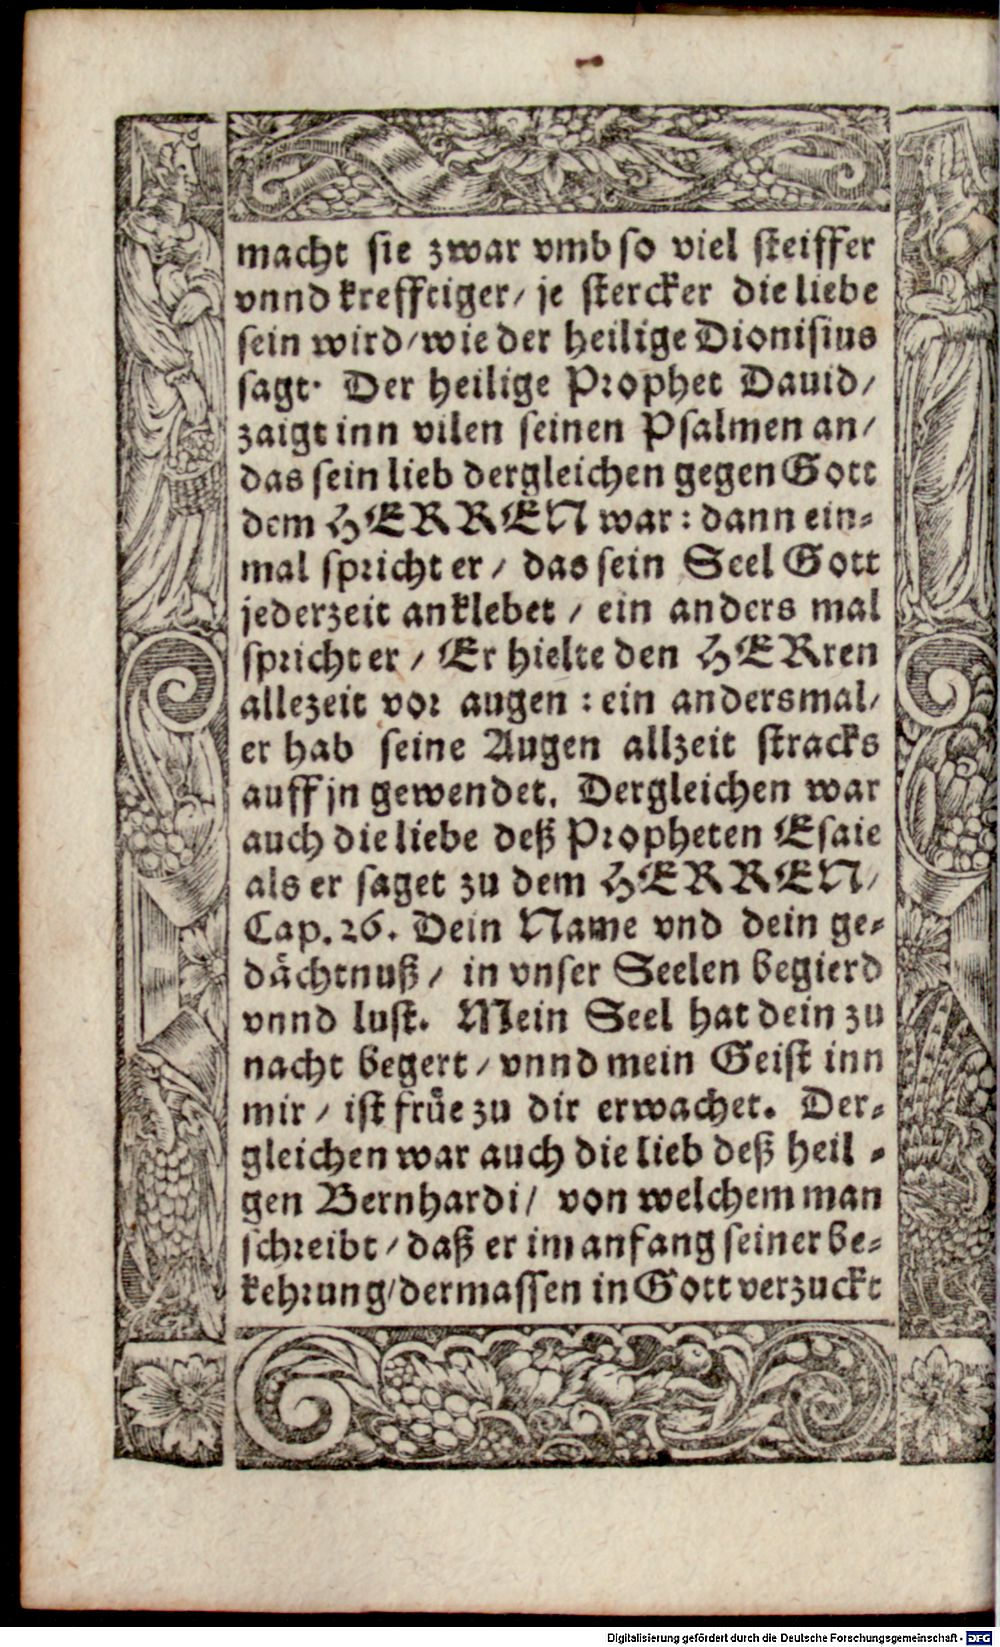 macht sie zwar vmb so viel steiffer
vnnd krefftiger/ je stercker die liebe
sein wird/ wie der heilige Dionisius
sagt. Der heilige Prophet Dauid/
zaigt inn vilen seinen Psalmen an/
das sein lieb dergleichen gegen Gott
dem HERREN war: dann ein=
mal spricht er/ das sein Seel Gott
jederzeit anklebet/ ein anders mal
spricht er/ Er hielte den HERren
allezeit vor augen: ein andersmal/
er hab seine Augen allzeit stracks
auff jn gewendet. Dergleichen war
auch die liebe deß Propheten Esaie
als er saget zu dem HERREN/
Cap. 26. Dein Name vnd dein ge=
dächtnuß/ in vnser Seelen begierd
vnnd lust. Mein Seel hat dein zu
nacht begert/ vnnd mein Geist inn
mir/ ist früe zu dir erwachet. Der=
gleichen war auch die lieb deß heil=
gen Bernhardi/ von welchem man
schreibt/ daß er im anfang seiner be=
kehrung/ dermassen in Gott verzuckt
Digitalisierung gefördert durch die Deutsche Forschungsgemeinschaft - DFG